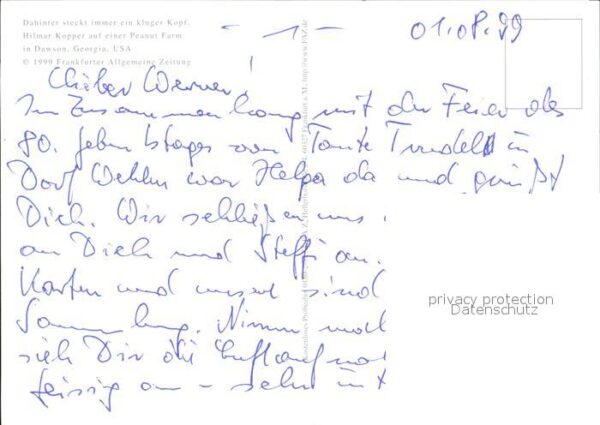 Dahinter steckt immer ein kluger Kopf.
Hilmar Kopper auf einer Peanut Farm
in Dawson, Georgia, USA
© 1999 Frankfurter Allgemeine Zeitung
- 1 -
01.08.99
Lieber Werner!
Im Zusammenhang mit der Feier des
80. Geburtstages von Tante Trudel in
Dorf Wehlen war Helga da und grüßt
Dich. Wir schließen uns
an Dich und Steffi an.
Karten und unsere sind
Sammlung. Nimm
sich Dir die
an - sehr
privacy protection
Datenschutz